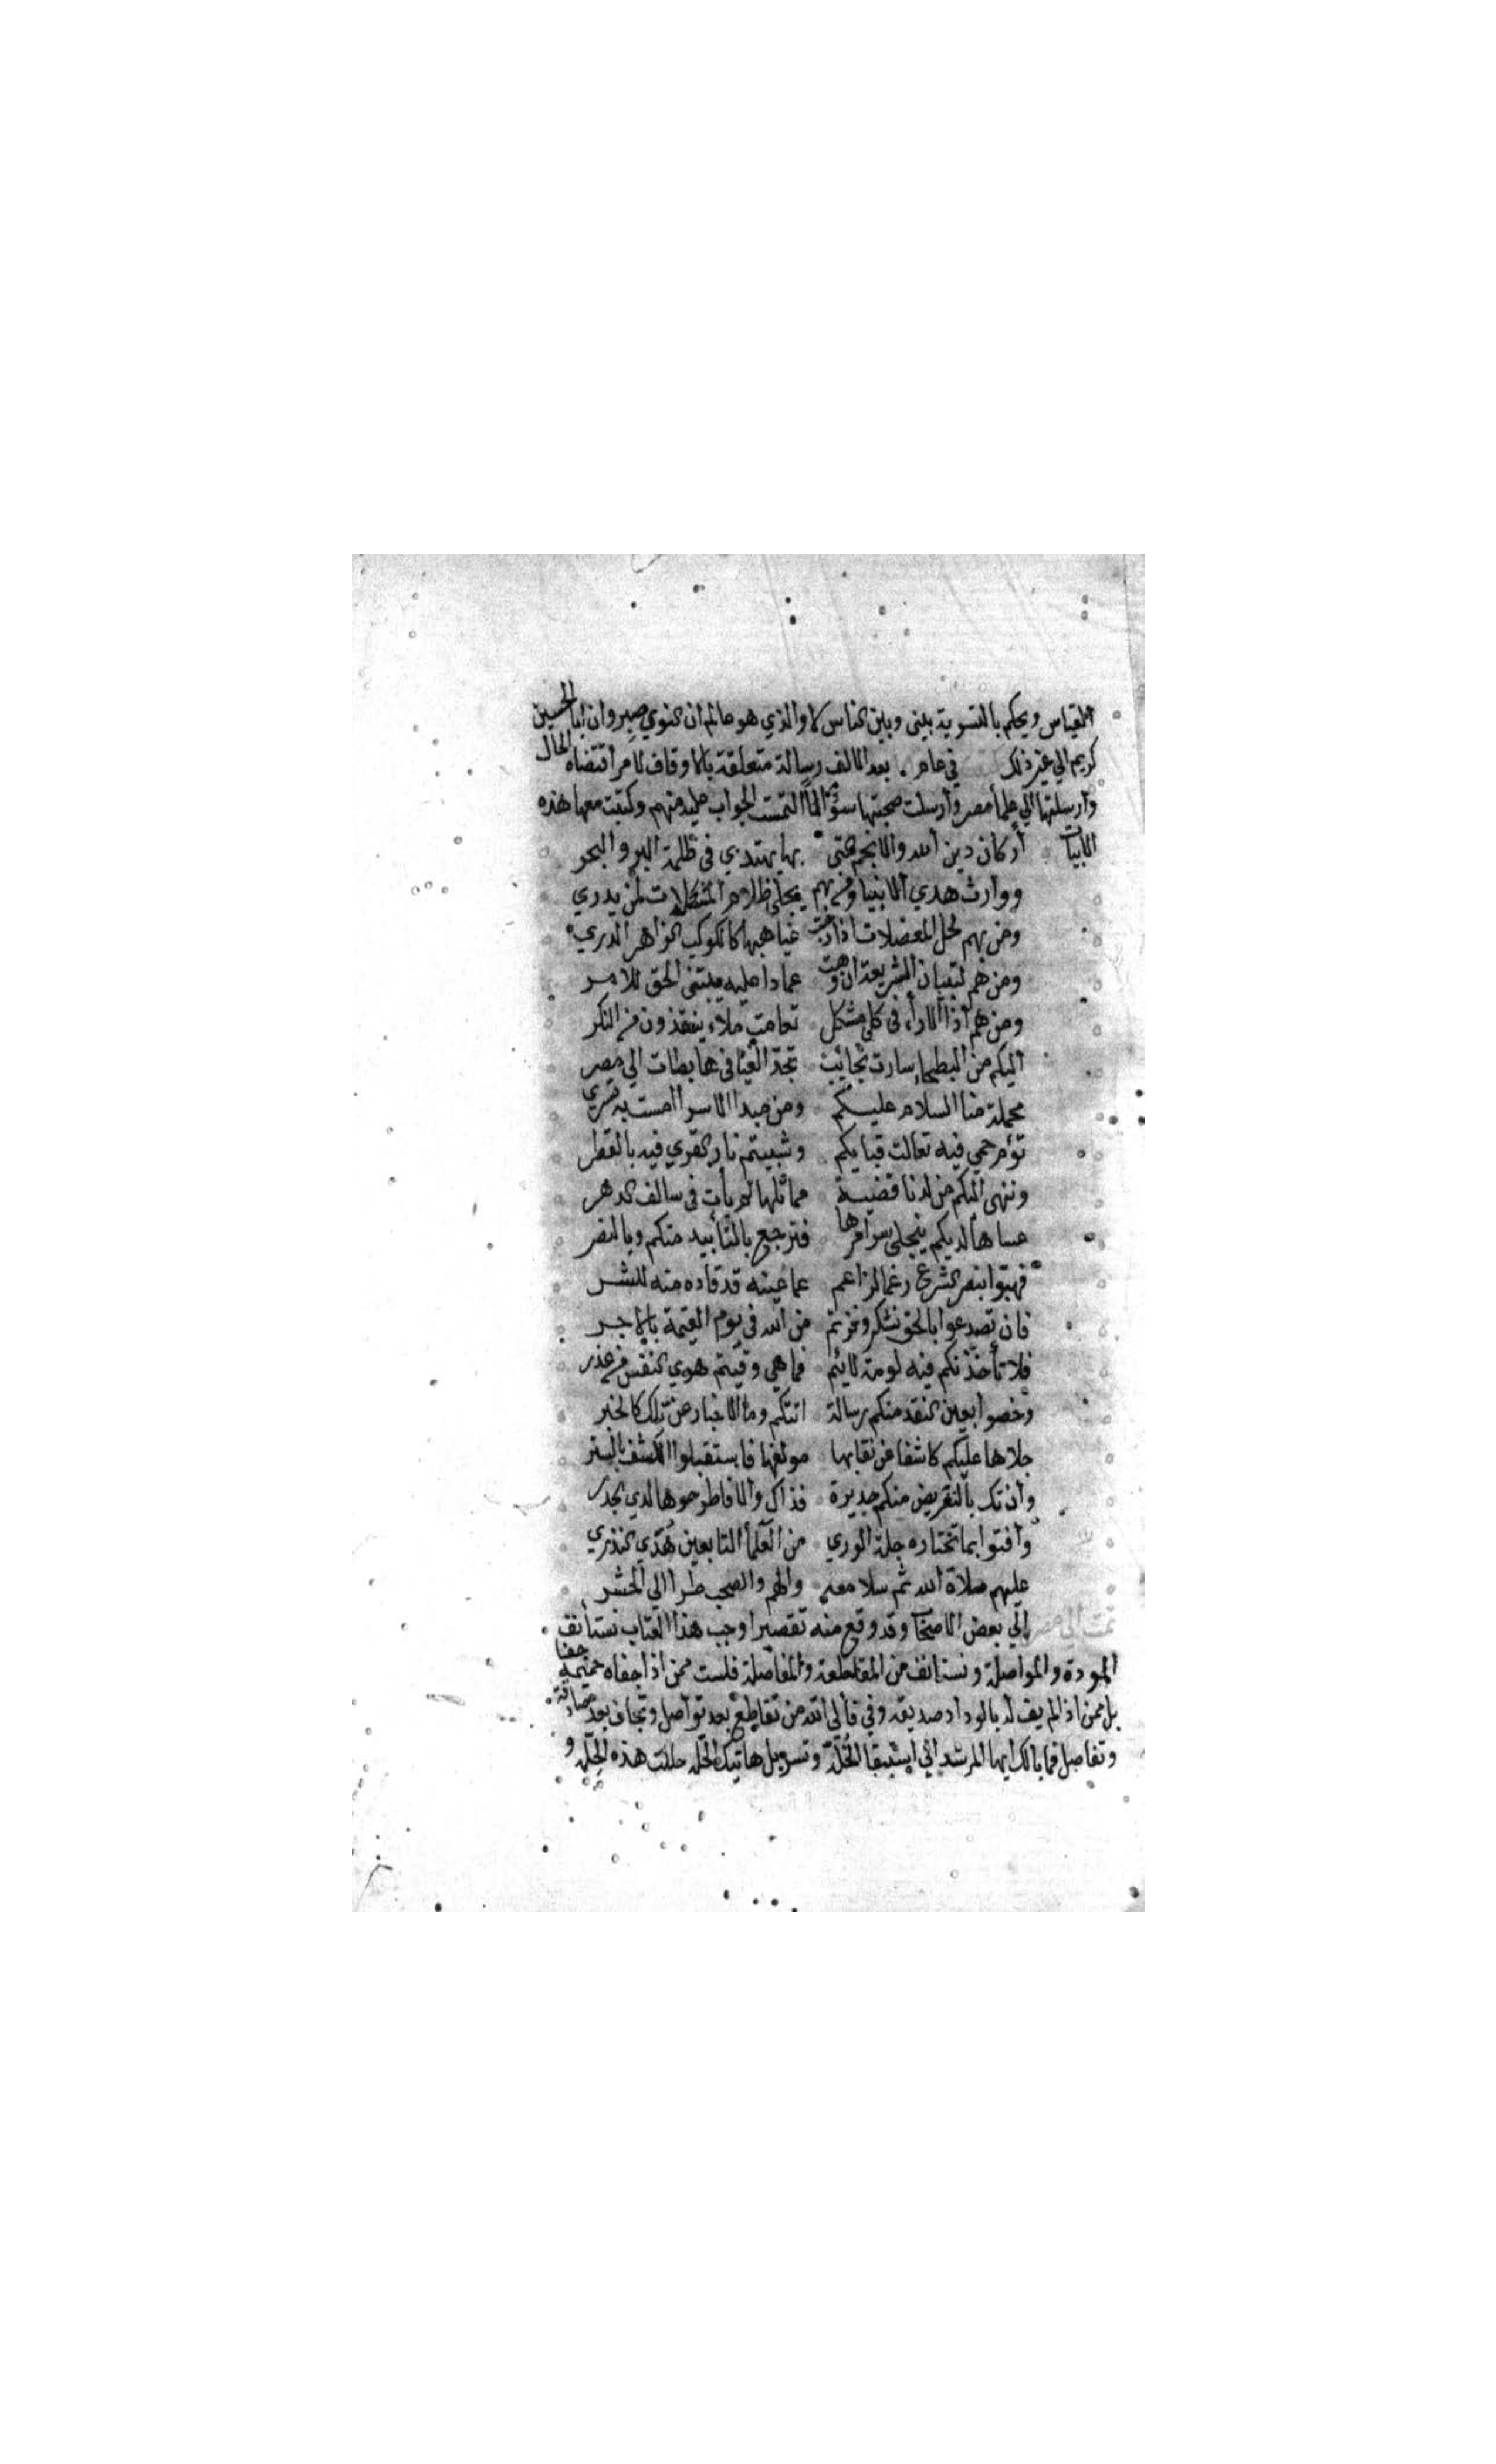 المقياس ويحكم بالتسوية بيني وبين الناس كلا والذي هو عالم ان النوي صبر وان ابا الحسين
كريم الي غير ذلك في عام . بعد الالف رسالة متعلقة بالاوقاف لامر اقتضاه الحال
وارسلتها الي علما مصر وارسلت صحبتها سؤالا التمست الجواب عليه منهم وكتبت معها هذه
الابيات أركان دين الله والانجم التي بها يهتدي في ظلمة البر والبحر
ووارث هدي الانبيا ومن بهم يجلي ظلام المشكلات لمن يدري
ومن بهم لحل المعضلات اذا غياهبها كالكوكب الزاهر الدري
ومن هم لتبيان الشريعة ان وهت عمادا عليه يبتني الحق للامر
ومن هم اذا الاراء في كل مشكل تعامت ملاء ينقذون من النكر
اليكم من البطحاء سارت نجائب تجد الفيافي هابطات الي مصر
محملة منا السلام عليكم ومن مبدا الاسرا امست به تسري
تؤم حمي فيه تعالت قبابكم وشبيتم نار القري فيه بالقطر
وننهي اليكم من لدنا قضية مماثلها لم يأت في سالف الدهر
عساها لديكم ينجلي سر امرها فترجع بالتأييد منكم وبالنصر
فهبوا بنصر الشرع رغما لزاعم عما عينه قد قاده منه للشر
فان تصدعوا بالحق نشكر وفزتم من الله في يوم القيمة بالاجر
فلا تأخذنكم فيه لومة لايم فما هي وقيتم هوي النفس من عذر
وخصوا بعين النقد منكم رسالة اتتكم وما الاخبار عن تلك كالخبر
جلاها عليكم كاشفا عن نقابها مولفها فاستقبلوا الكشف بالستر
وان تك بالتقريض منكم جديرة فذاك والا فاطرحوها لدي الجدر
وافتوا بما تختاره جلة الوري من العلما التابعين هدي النذري
عليهم صلاة الله ثم سلامه والهم والصحب طرا الي الحشر
تمت الي مصر الي بعض الاصحاب وقد وقع منه تقصير اوجب هذا العتاب نستأنف
المودة والمواصلة ونستانف من المقاطعة والمفاصلة فلست ممن اذا جفاه حميمه جفا
بل ممن اذا لم يف له بالوداد صديقه وفي فالي الله من تقاطع بعد تواصل وتجاف بعد تصادقه
وتفاصل فما بالك ايها المرشد الي استبقا الخلة وتسربل هاتيك الحلة حللت هذه الحلة و